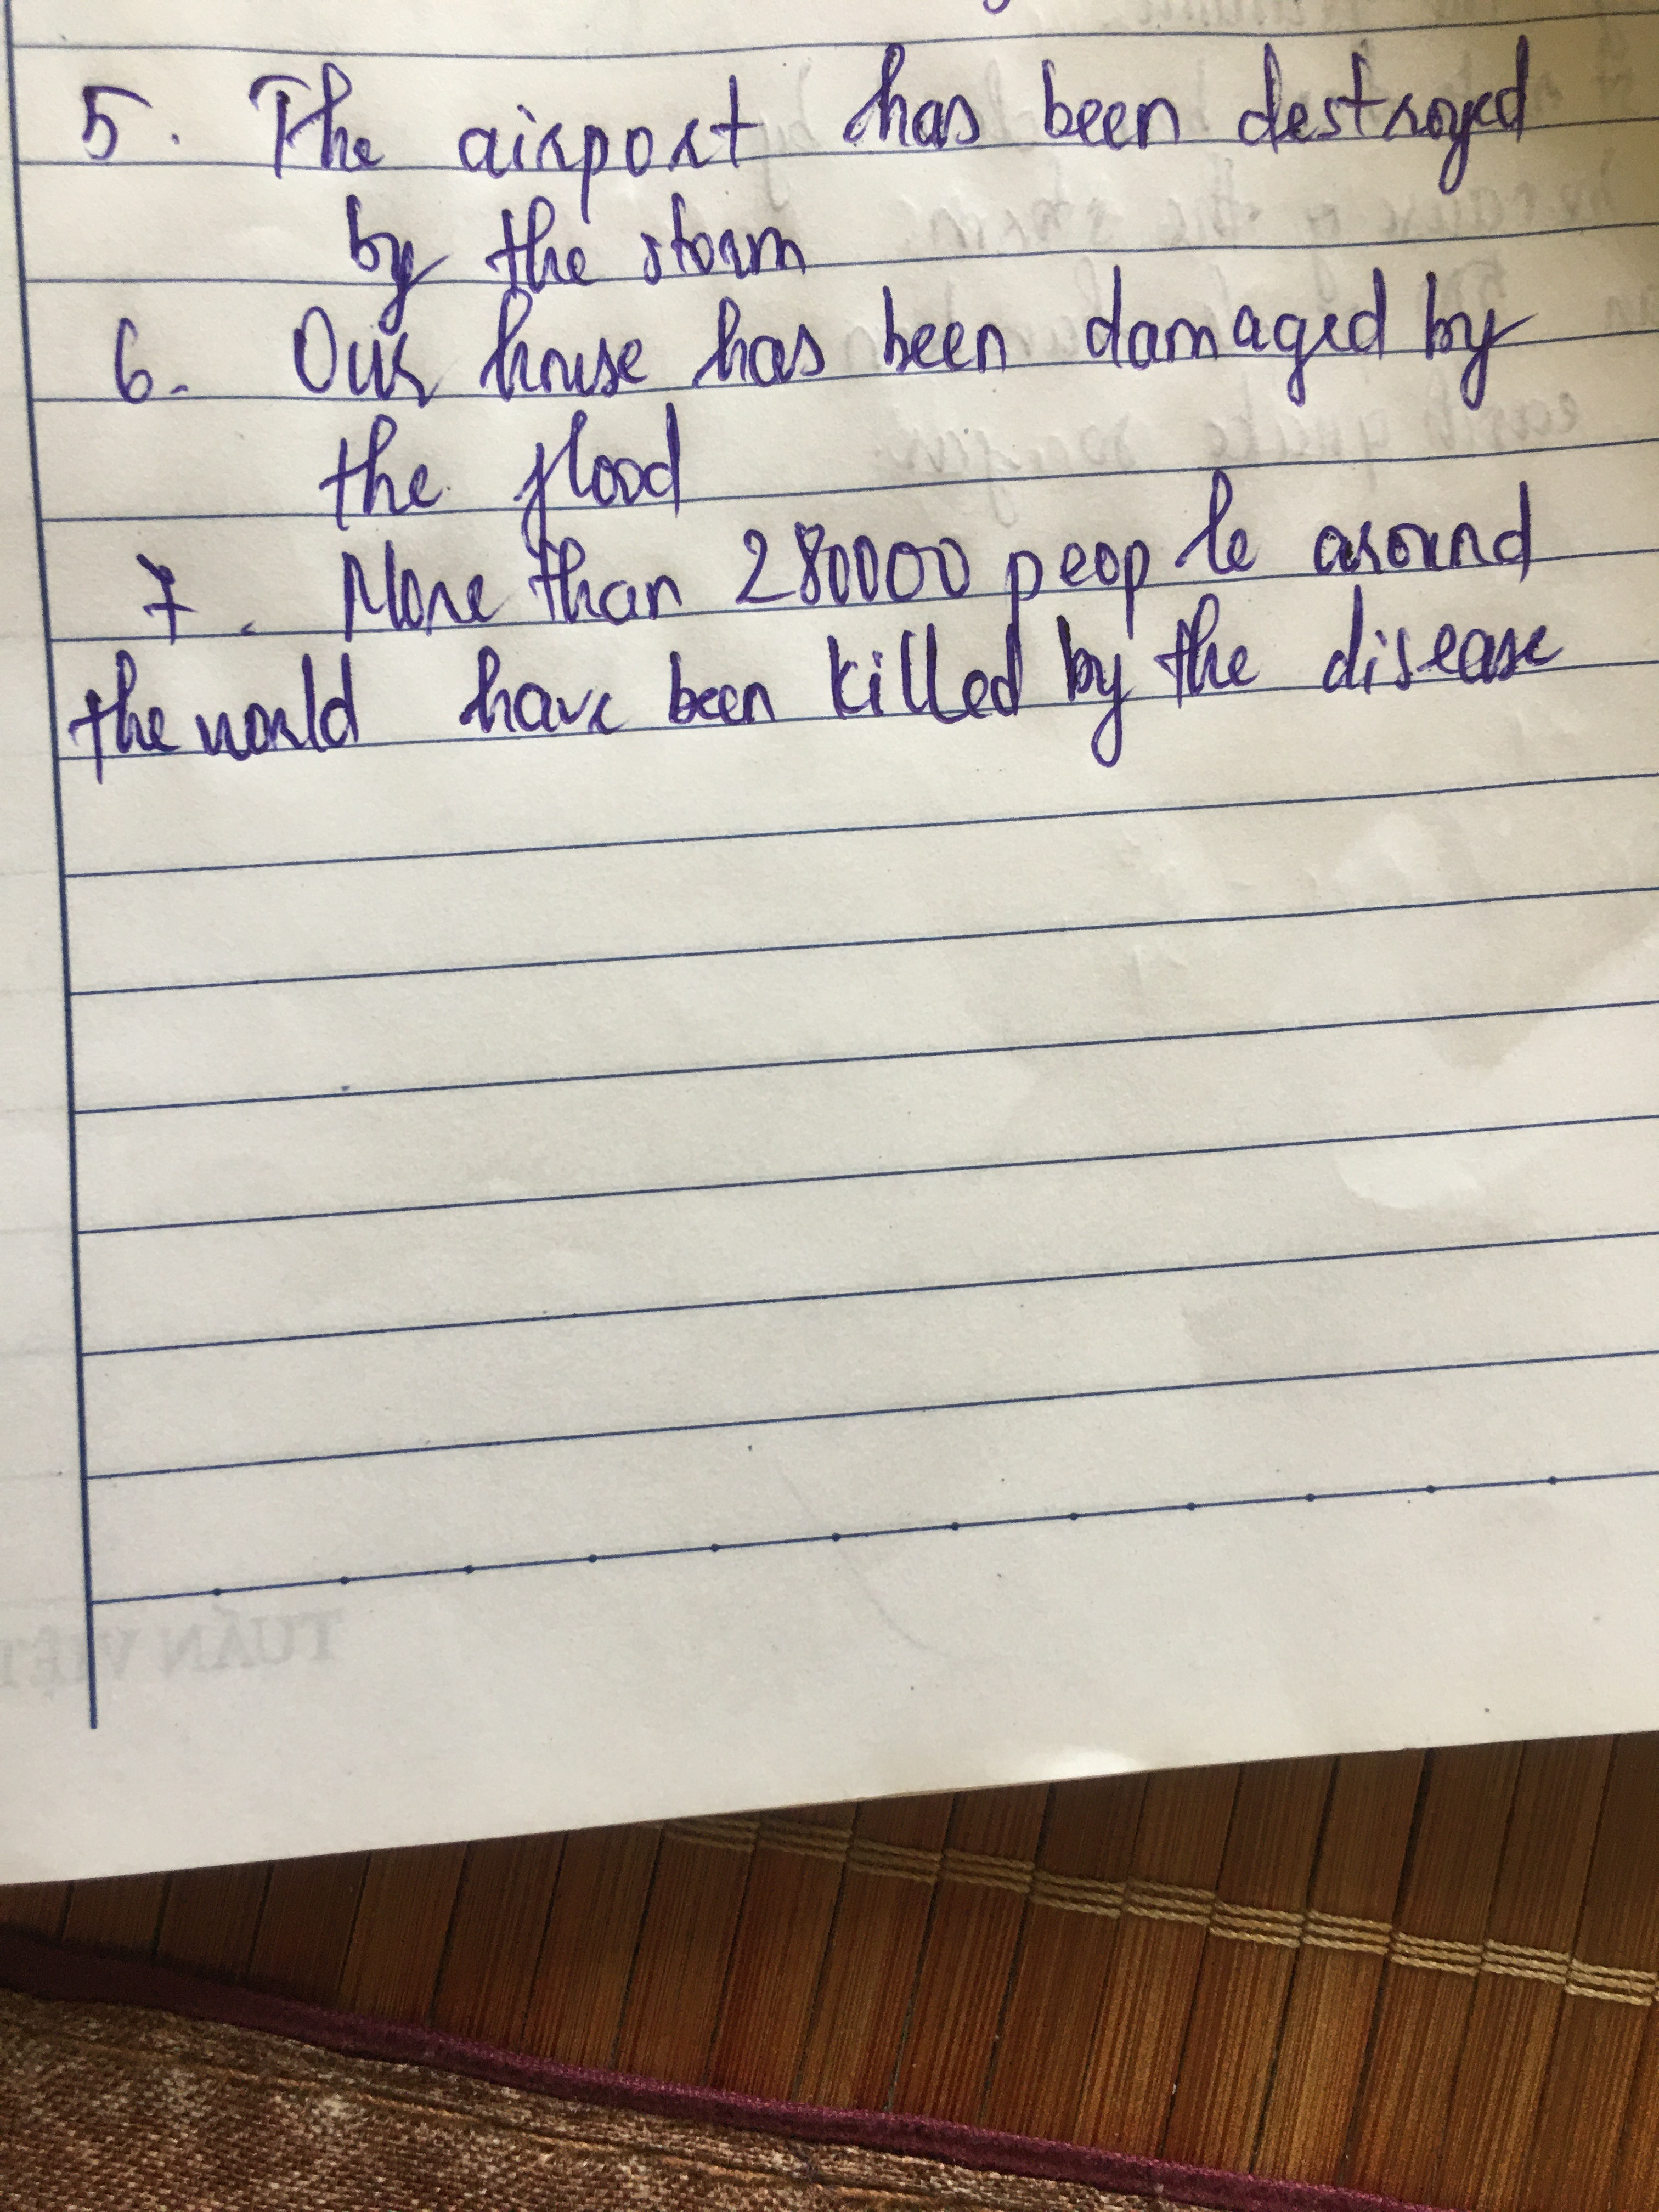 5. The airport has been destroyed
by the storm
6. Our house has been damaged by
the flood
7. More than 280000 people around
the world have been killed by the disease
TUẤN VIỆT